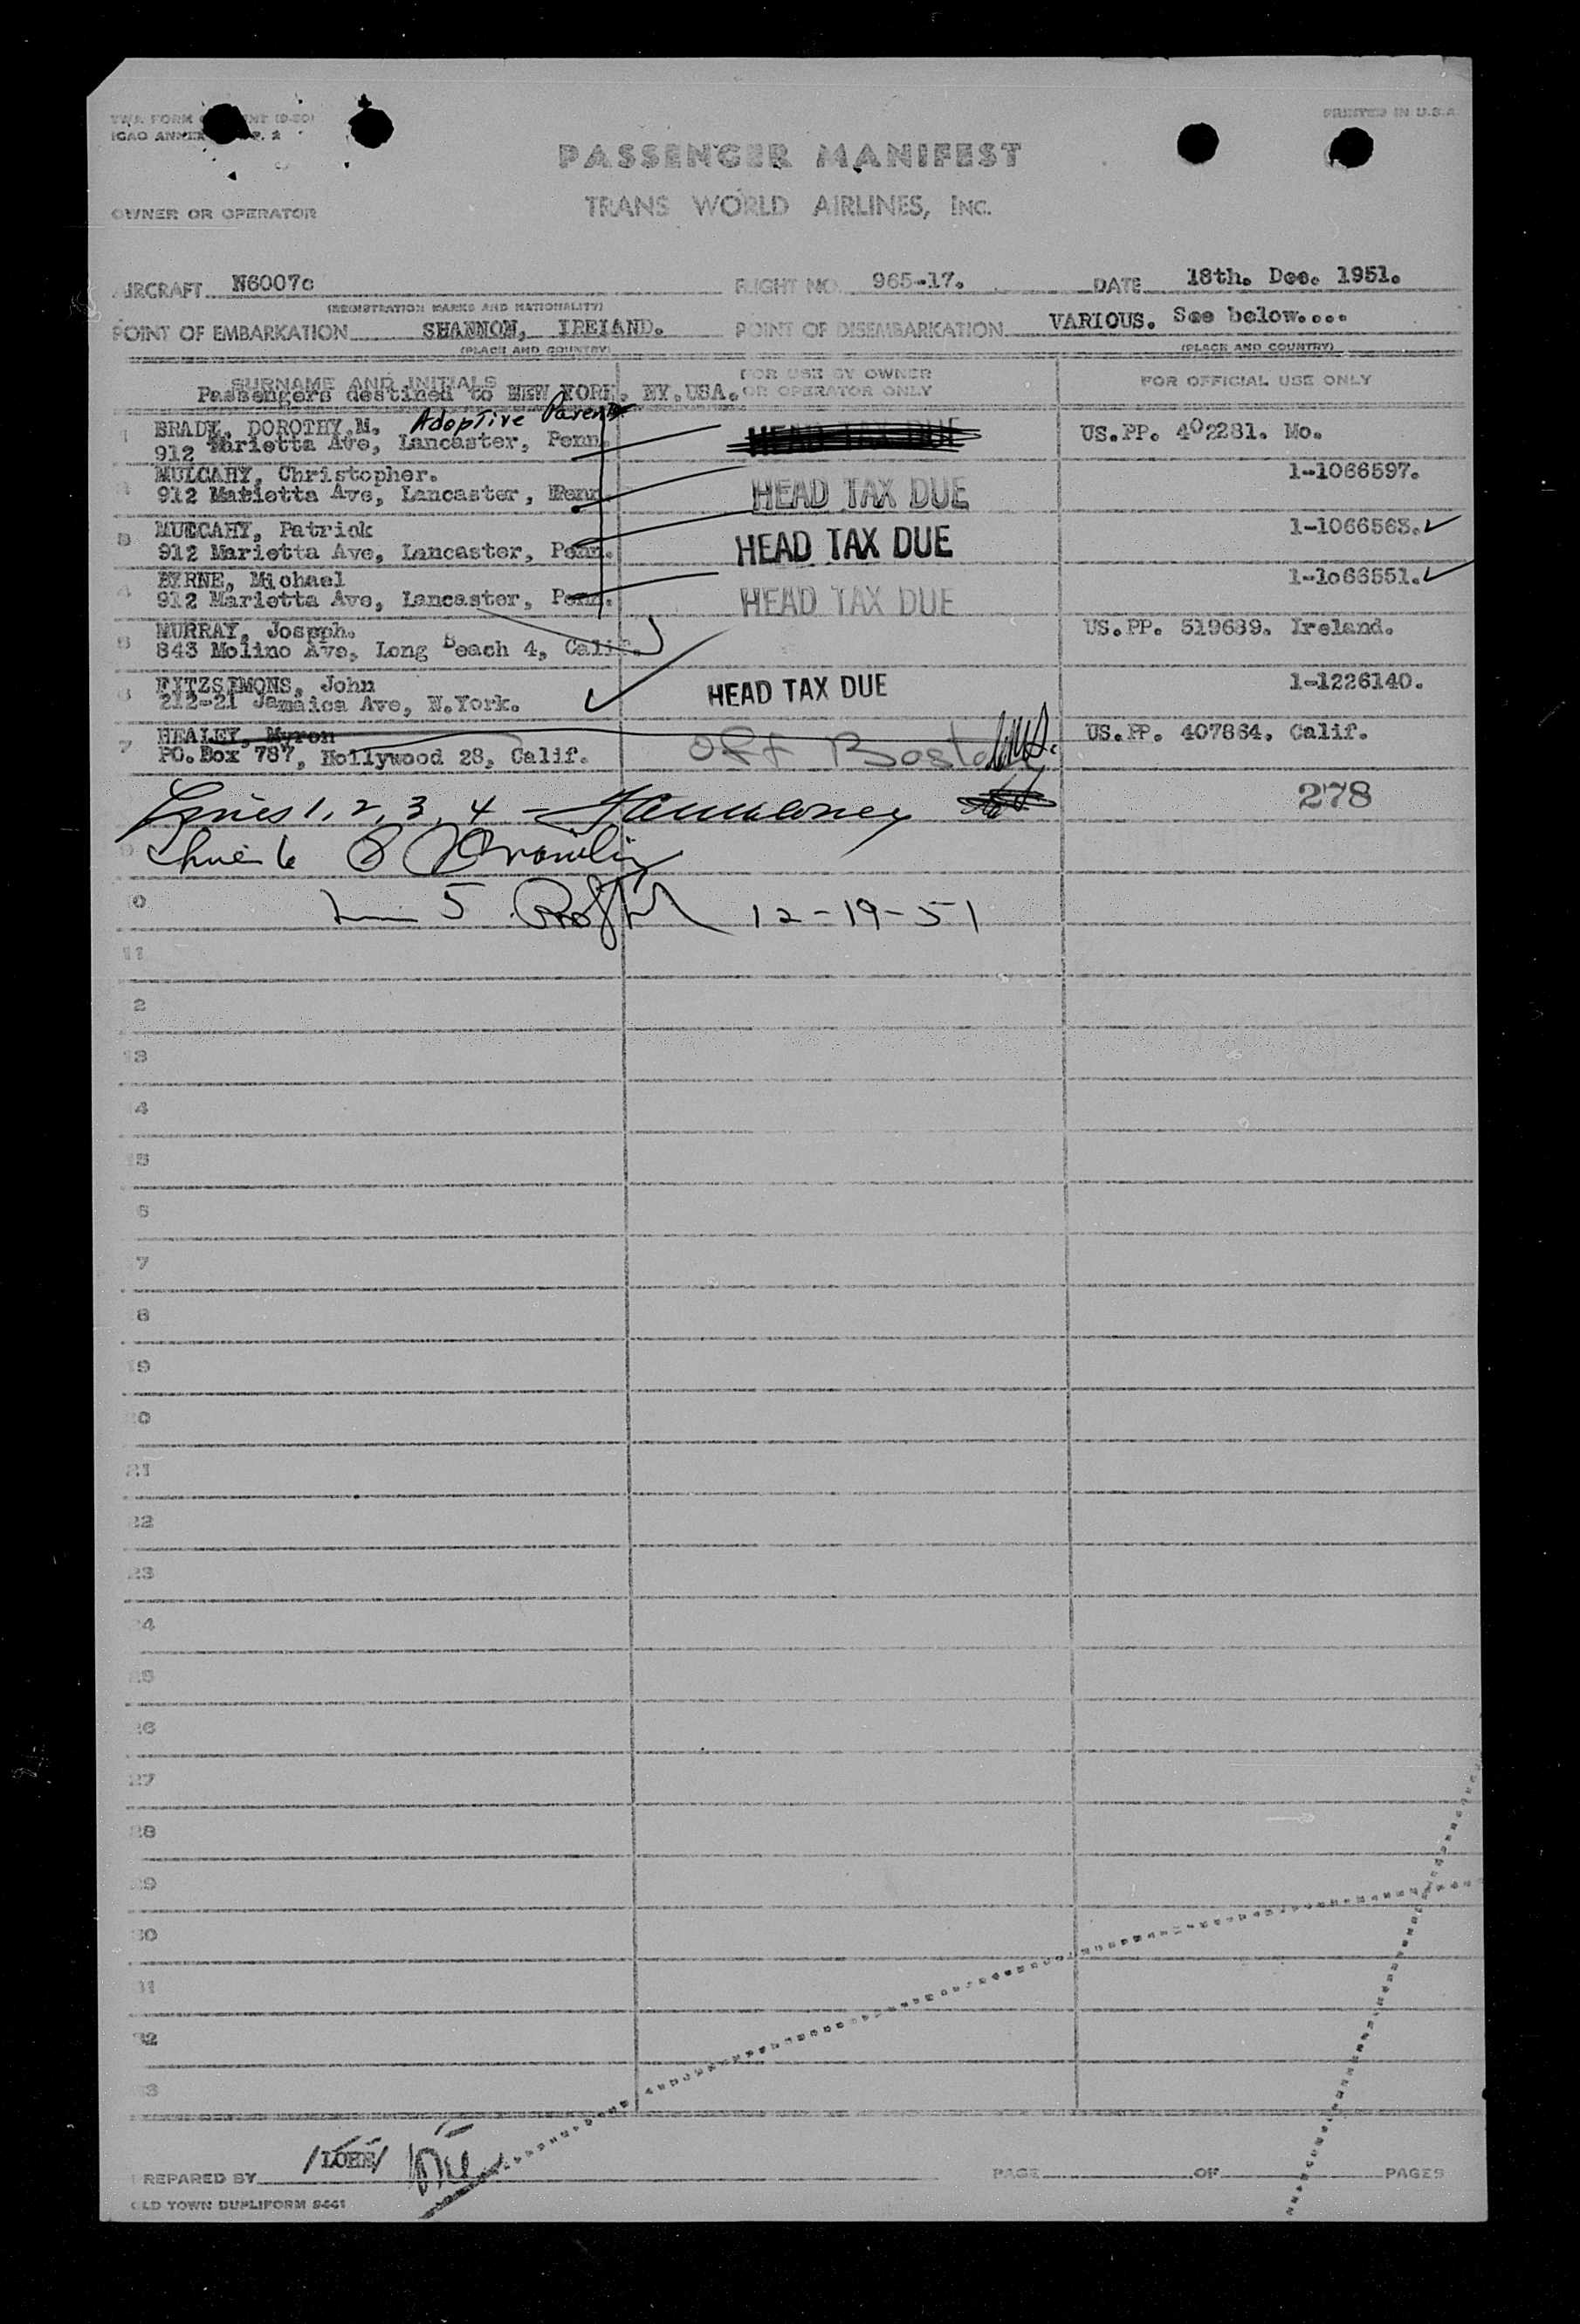 PRINTED IN U.S.A.
PASSENGER MANIFEST
TRANS WORLD AIRLINES, INC.
OWNER OR OPERATOR
AIRCRAFT N6007c FLIGHT NO. 965-17. DATE 18th. Dec. 1951.
(REGISTRATION MARKS AND NATIONALITY)
POINT OF EMBARKATION SHANNON, IRELAND. POINT OF DISEMBARKATION VARIOUS. See below....
(PLACE AND COUNTRY) (PLACE AND COUNTRY)
SURNAME AND INITIALS FOR USE BY OWNER OR OPERATOR ONLY FOR OFFICIAL USE ONLY
Passengers destined to NEW YORK. NY. USA.
1 BRADY, DOROTHY.M. Adoptive Parent HEAD TAX DUE US.PP. 402281. Mo.
912 Marietta Ave, Lancaster, Penn.
MULCAHY, Christopher. 1-1066597.
912 Marietta Ave, Lancaster, Penn. HEAD TAX DUE
3 MULCAHY, Patrick 1-1066563.
912 Marietta Ave, Lancaster, Penn. HEAD TAX DUE
4 BYRNE, Michael 1-1o66551.
912 Marietta Ave, Lancaster, Penn. HEAD TAX DUE
5 MURRAY, Joseph. US.PP. 519689. Ireland.
843 Molino Ave, Long Beach 4, Calif.
6 FITZSIMONS, John HEAD TAX DUE 1-1226140.
212-21 Jamaica Ave, N.York.
7 HEALEY, Myron Off Boston US.PP. 407864. Calif.
PO.Box 787, Hollywood 28, Calif.
Lines 1, 2, 3, 4 - 278
Line 6
0 Line 5 12-19-51
11
2
13
4
15
6
7
8
19
20
21
22
23
24
25
26
27
28
29
30
31
32
3
PREPARED BY PAGE OF PAGES
OLD TOWN DUPLIFORM